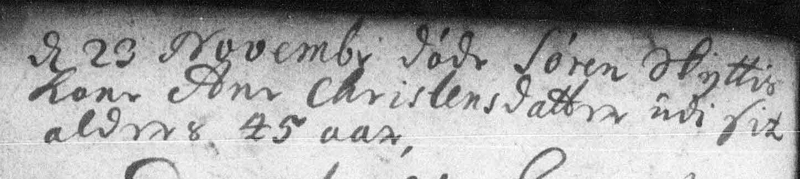 d 23 Novembr døde Søren Skyttis
Kone Ane Christensdatter udi sit
alders 45 aar,